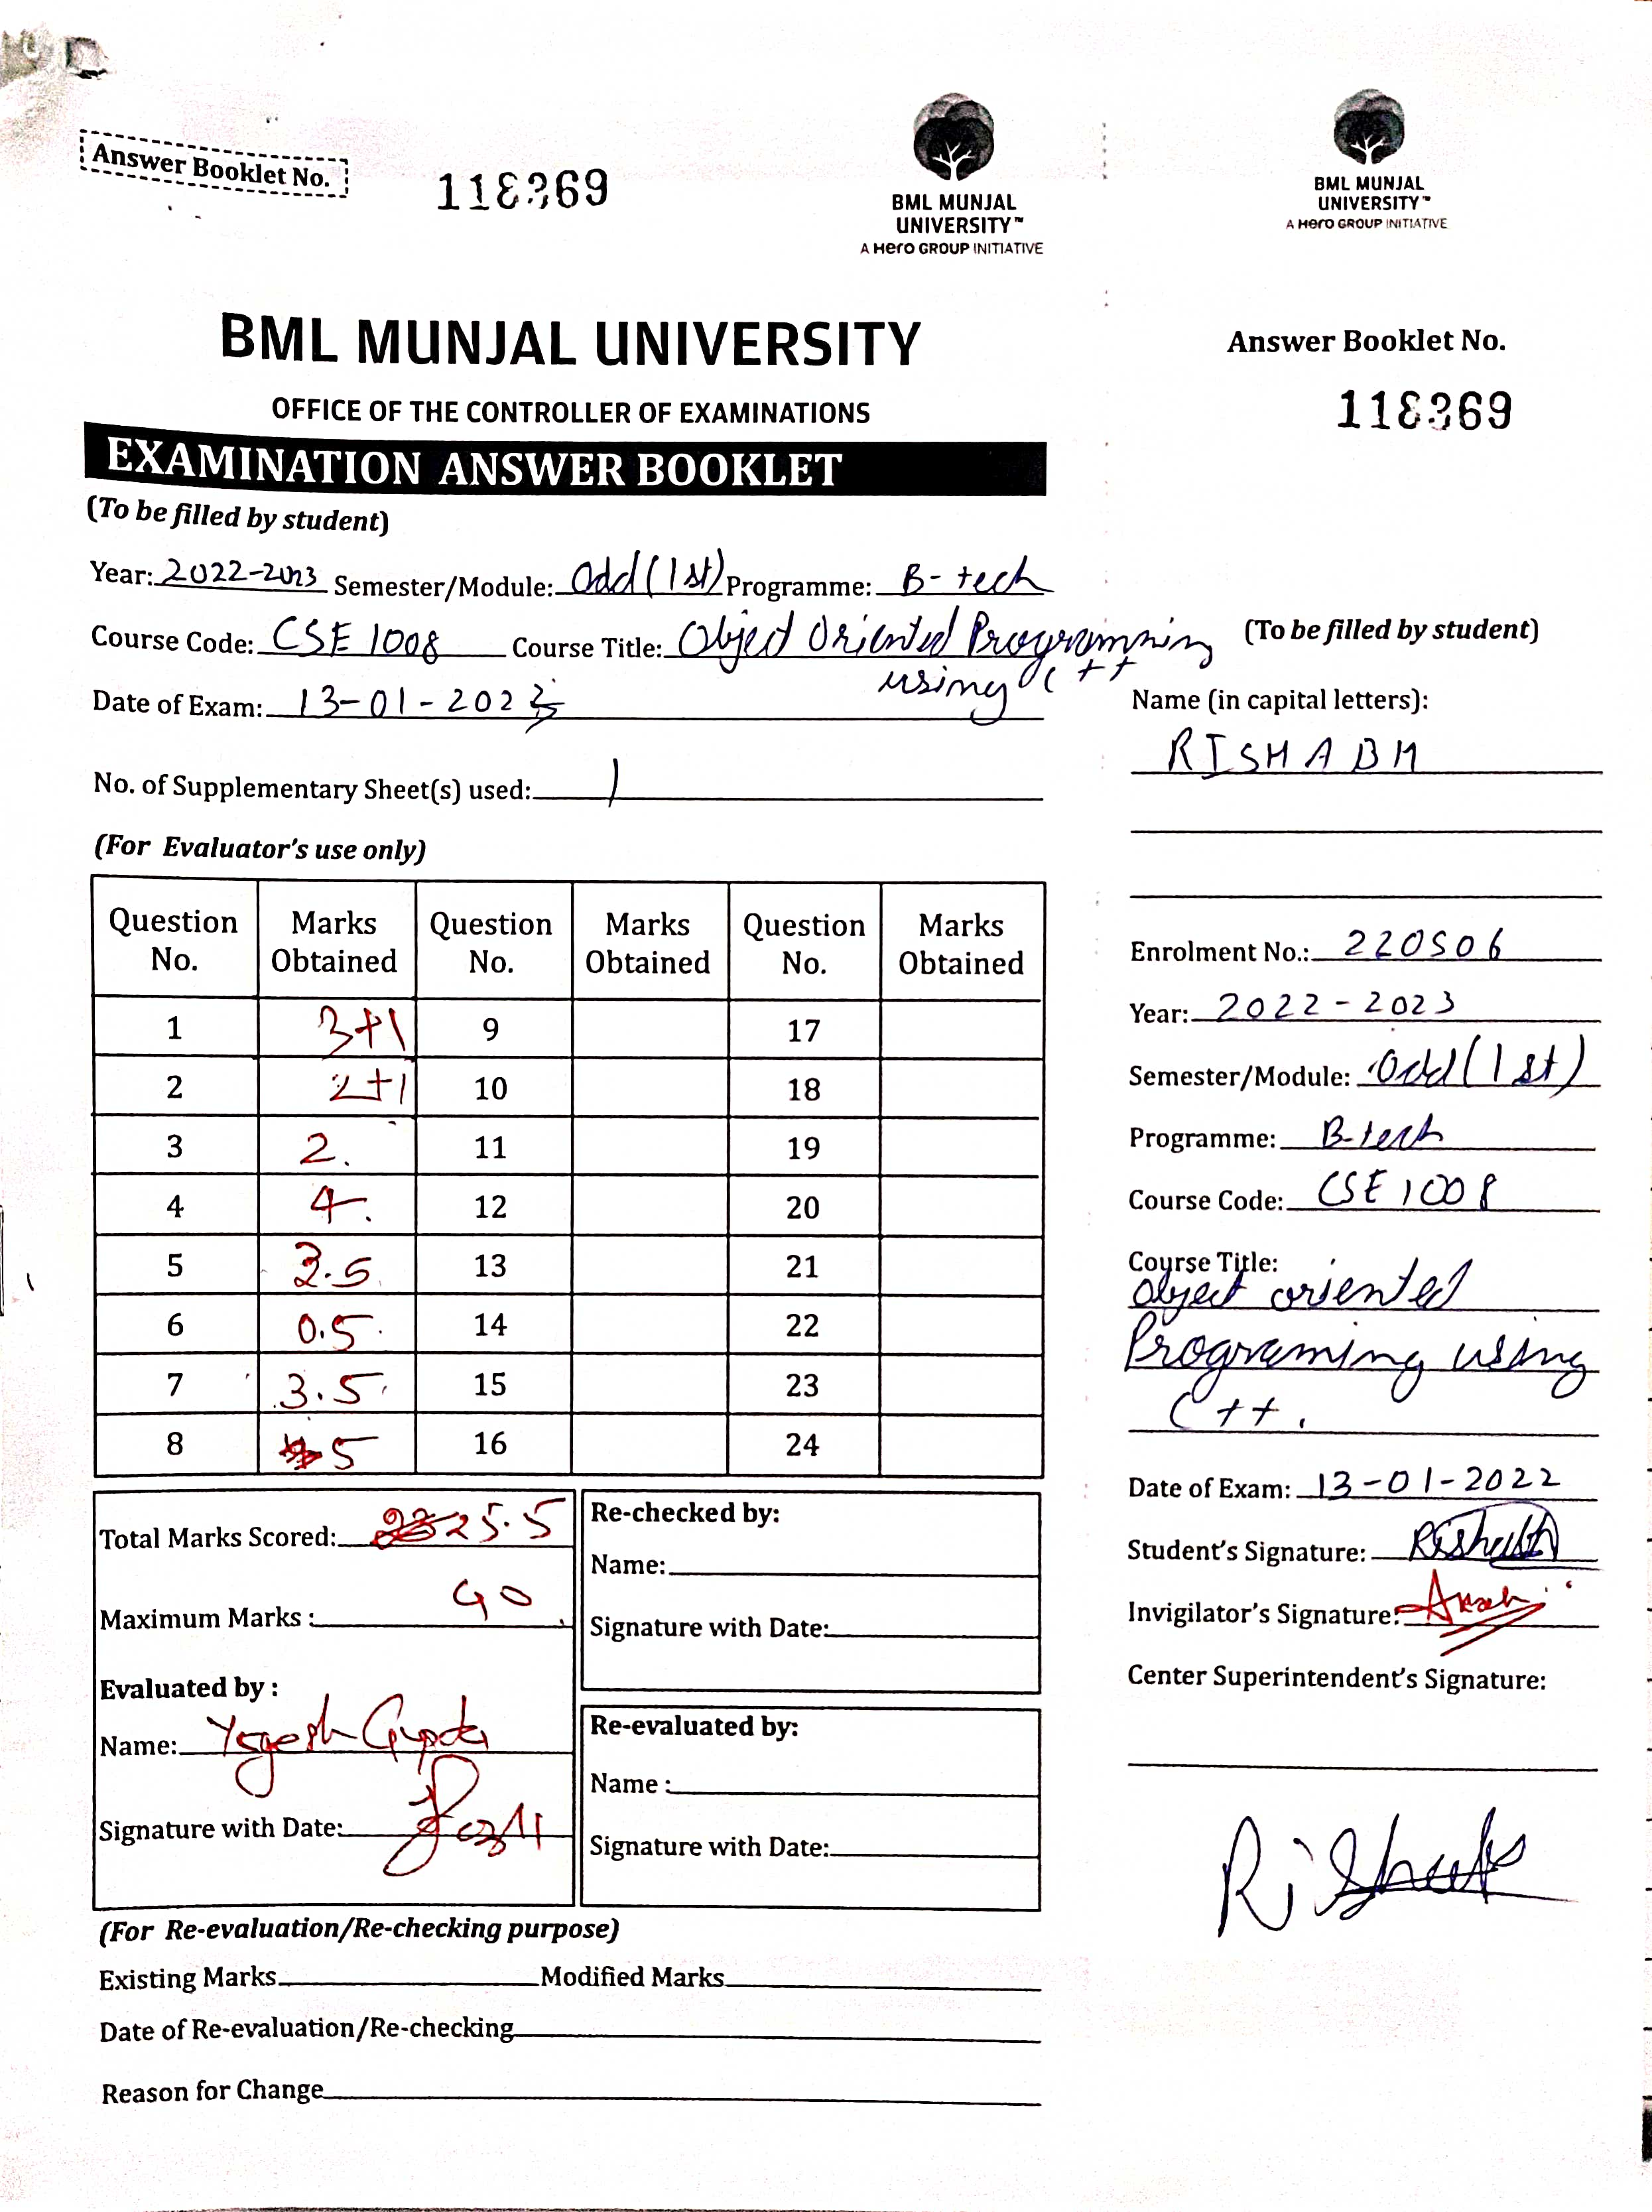 Answer Booklet No.
118369
BML MUNJAL
UNIVERSITY™
A Hero GROUP INITIATIVE
BML MUNJAL UNIVERSITY
OFFICE OF THE CONTROLLER OF EXAMINATIONS
EXAMINATION ANSWER BOOKLET
(To be filled by student)
Year: 2022-2023 Semester/Module: Odd (1st) Programme: B-tech
Course Code: CSE 1008 Course Title: Object Oriented Programming
using C++
Date of Exam: 13-01-2023
No. of Supplementary Sheet(s) used: 1
(For Evaluator's use only)
Question No. Marks Obtained Question No. Marks Obtained Question No. Marks Obtained
1 3+1 9 17
2 2+1 10 18
3 2. 11 19
4 4. 12 20
5 13 21
6 0.5. 14 22
7 3.5. 15 23
8 5 16 24
Total Marks Scored: 25.5
Maximum Marks : 40
Evaluated by :
Name: Yogesh Gupta
Signature with Date:
Re-checked by:
Name:
Signature with Date:
Re-evaluated by:
Name :
Signature with Date:
(For Re-evaluation/Re-checking purpose)
Existing Marks Modified Marks
Date of Re-evaluation/Re-checking
Reason for Change
BML MUNJAL
UNIVERSITY™
A Hero GROUP INITIATIVE
Answer Booklet No.
118369
(To be filled by student)
Name (in capital letters):
RISHABH
Enrolment No.: 220506
Year: 2022-2023
Semester/Module: Odd (1st)
Programme: B-tech
Course Code: CSE 1008
Course Title:
Object oriented
Programing using
C++.
Date of Exam: 13-01-2022
Student's Signature: Rishabh
Invigilator's Signature:
Center Superintendent's Signature:
Rishabh